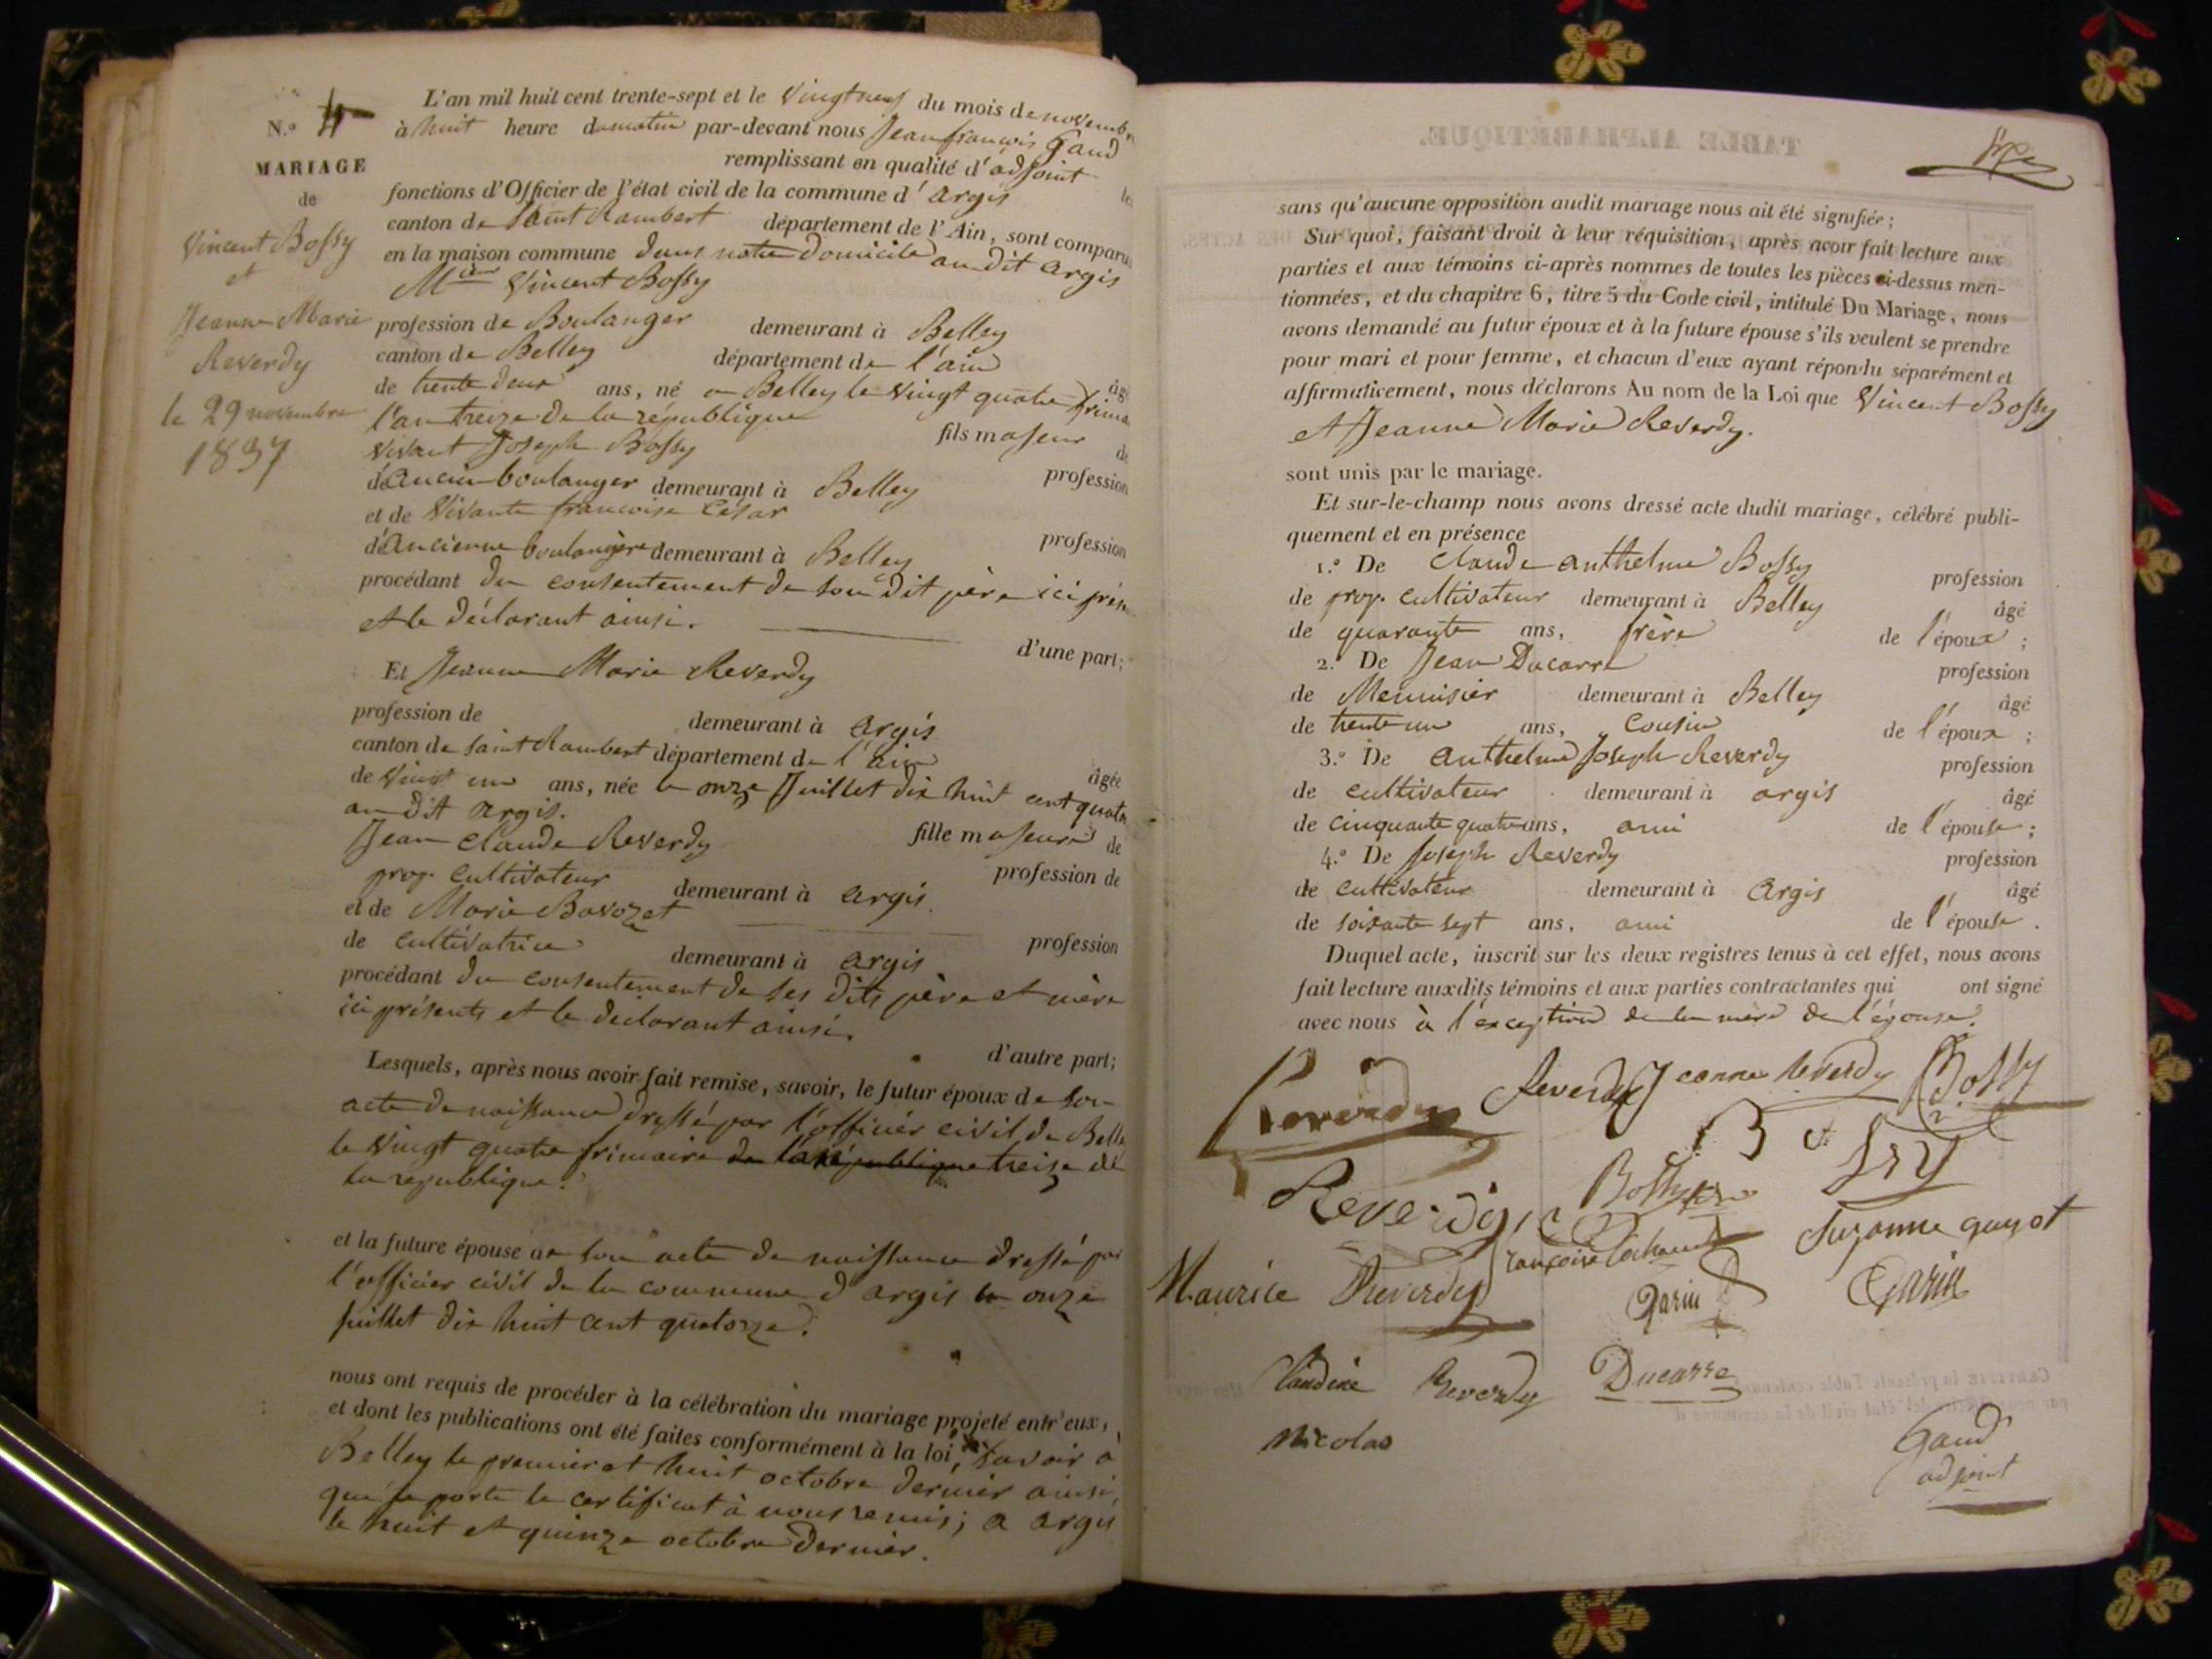 N.o 4
MARIAGE
de
Vincent Bossy
et
Jeanne Marie
Reverdy
le 29 novembre
1837
L'an mil huit cent trente-sept et le vingt neuf du mois de novembre
à huit heure du matin par-devant nous Jean françois Gaud
remplissant en qualité d'adjoint les
fonctions d'Officier de l'état civil de la commune d'argis
canton de Saint Rambert département de l'Ain, sont comparus
en la maison commune dans notre domicile au dit argis
Vincent Bossy
profession de Boulanger demeurant à Belley
canton de Belley département de l'ain
âgé
de trente deux ans, né a Belley le vingt quatre frimai
l'an treize de la république
fils majeur de
vivant Joseph Bossy
profession
d'ancien boulanger demeurant à Belley
et de vivante francoise César
profession
d'ancienne boulangère demeurant à Belley
procédant du consentement de son dit père ici prés
et le déclarant ainsi.
d'une part;
Et Jeanne Marie Reverdy
profession de demeurant à argis
canton de saint Rambert département de l'ain
âgée
de vingt un ans, née le onze Juillet dix huit cent quator
au dit argis.
fille majeure de
Jean Claude Reverdy
profession de
prop. cultivateur demeurant à argis
et de Marie Bavozet
profession
de cultivatrice demeurant à argis
procédant du consentement de ses dits père et mère
ici présents et le déclarant ainsi.
d'autre part;
Lesquels, après nous avoir fait remise, savoir, le futur époux de son
acte de naissance dressé par l'officier civil de Belle
le vingt quatre frimaire de la république treize de
la république.
et la future épouse de son acte de naissance dressé par
l'officier civil de la commune d'argis le onze
juillet dix huit cent quatorze.
nous ont requis de procéder à la célébration du mariage projeté entr'eux,
et dont les publications ont été faites conformément à la loi, savoir à
Belley le premier et huit octobre dernier ainsi
que le porte le certificat à nous remis; a argis
le huit et quinze octobre dernier.
TABLE ALPHABÉTIQUE.
sans qu'aucune opposition audit mariage nous ait été signifiée;
Sur quoi, faisant droit à leur réquisition, après avoir fait lecture aux
parties et aux témoins ci-après nommes de toutes les pièces ci-dessus men-
tionnées, et du chapitre 6, titre 5 du Code civil, intitulé Du Mariage, nous
avons demandé au futur époux et à la future épouse s'ils veulent se prendre
pour mari et pour femme, et chacun d'eux ayant répondu séparément et
affirmativement, nous déclarons Au nom de la Loi que Vincent Bossy
et Jeanne Marie Reverdy.
sont unis par le mariage.
Et sur-le-champ nous avons dressé acte dudit mariage, célébré publi-
quement et en présence
1.o De Claude anthelme Bossy
profession
de prop. cultivateur demeurant à Belley
âgé
de quarante ans, frère de l'époux;
2.o De Jean Ducarre
profession
de Menuisier demeurant à Belley
âgé
de trente un ans, cousin de l'époux;
3.o De anthelme Joseph Reverdy
profession
de cultivateur demeurant à argis
âgé
de cinquante quatre ans, ami de l'épouse;
4.o De Joseph Reverdy
profession
de cultivateur demeurant à argis
âgé
de soixante sept ans, ami de l'épouse.
Duquel acte, inscrit sur les deux registres tenus à cet effet, nous avons
fait lecture auxdits témoins et aux parties contractantes qui ont signé
avec nous à l'exception de la mère de l'épouse.
Reverdy Reverdy Jeanne Reverdy Bossy
Reverdy Bossy
Suzanne guyot
Maurice Reverdy Garin Garin
Claudine Reverdy Ducarre
Nicolas
Gaud
adjoint